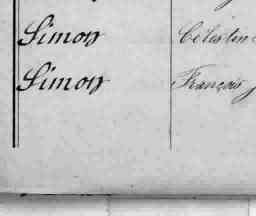 Simon Célestin
Simon François